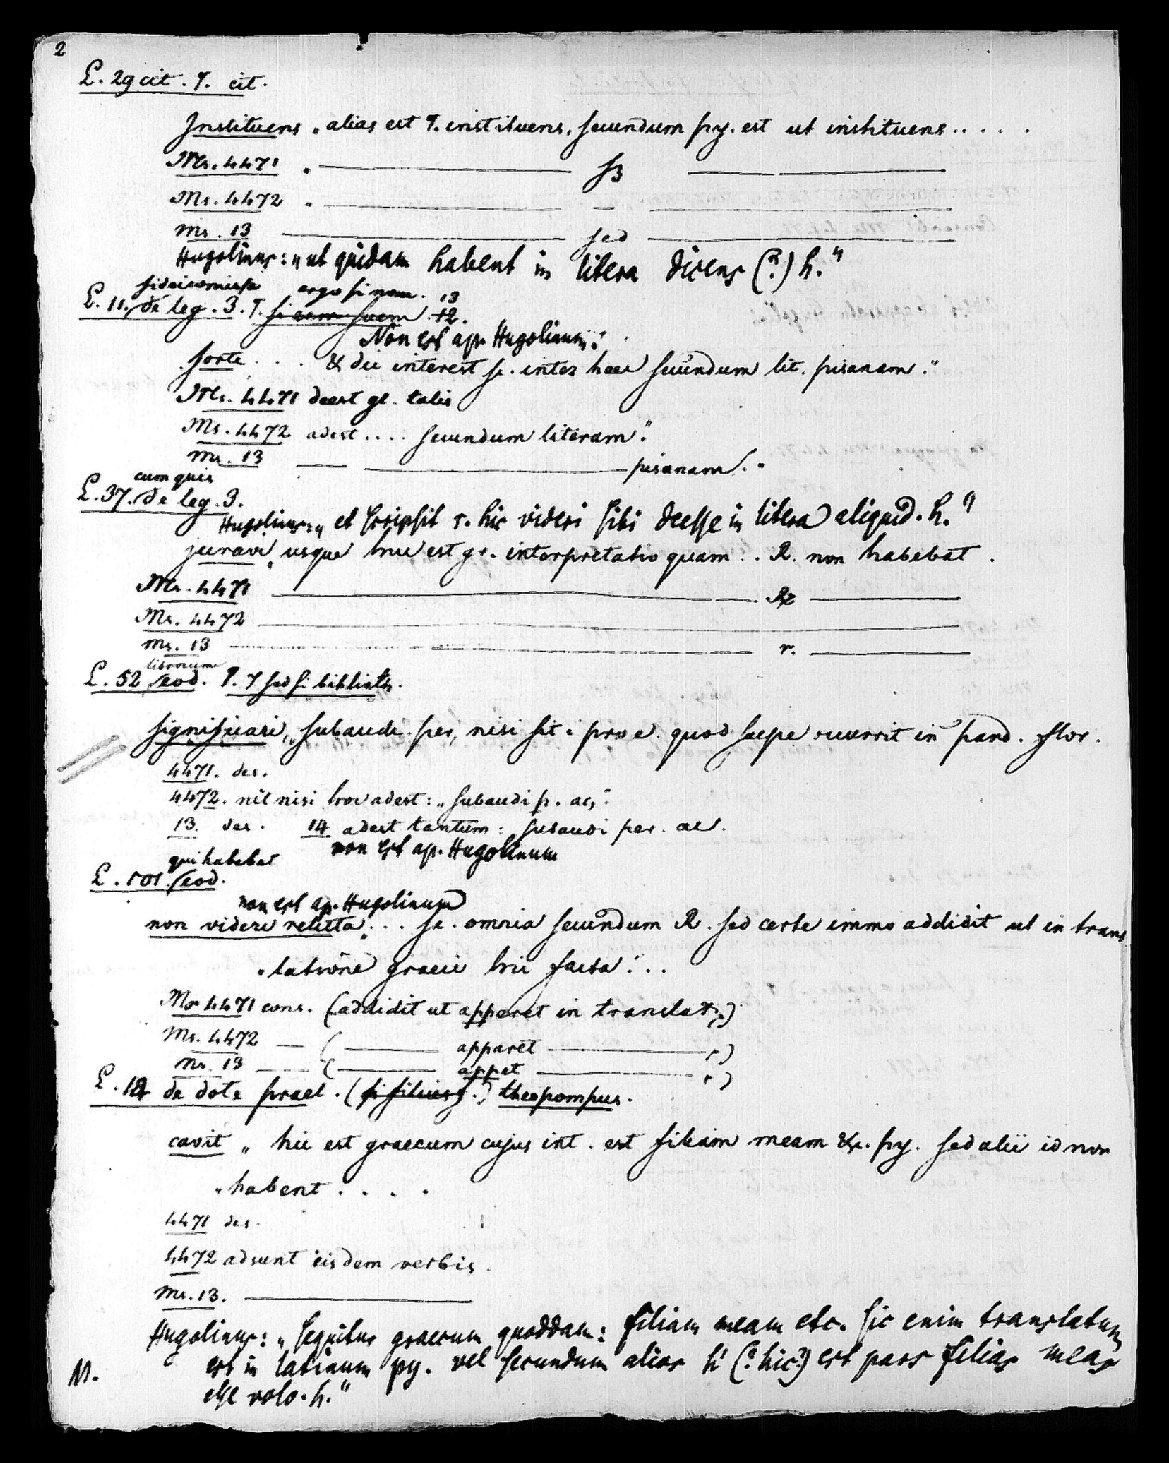 2
L. 29 cit. T. cit.
Instituens „ alias est T. instituens, secundum py. est ut instituens . . . . .
Ms. 4471 „ ——— ß ———
Ms. 4472 „ ——— — ———
Ms. 13 ——— sed ———
Hugolinus: „ut quidam habent in litera dicens (?) h."
fideicommissa ergo si nem. 13
L. 11. de leg. 3. T. si 12.
Non est ap. Hugolinum:
forte . . . & dic interest sc. inter haec secundum lit. pisanam."
Ms. 4471 deest gl. talis
Ms. 4472 adest . . . . secundum literam".
Ms. 13 — ——— pisanam."
cum quis
L. 37. de leg. 3.
Hugolinus: „ et scripsit r. hic videri sibi deesse in litera aliquid. h."
juravi „ usque huc est gr. interpretatio quam . . R. non habebat .
Ms. 4471 ——— R ———
Ms. 4472 ———
Ms. 13 ——— r. ———
librorum
L. 52 eod. T. 7 sed si bibliothe.
significari, „subaudi per, nisi sit: pro e. quod saepe occurrit in pand. flor.
4471. des.
4472. nil nisi hoc adest: „subaudi p. ac,"
13. des. 14 adest tantum: subaudi per. ac.
non est ap. Hugolinum
qui habebat
L. 101. eod.
non est ap. Hugolinum
non videri relicta „ . . . sc. omnia secundum R. sed certe immo addidit ut in trans
„latione graeci hic facta". . .
Ms 4471 cons. (addidit ut apperet in translat.)
Ms. 4472 — ( ——— apparet ——— „)
Ms. 13 — ( ——— appet ——— „)
L. 12 de dote prael. (si filiae.) theopompus.
cavit „ hic est graecum cujus int. est filiam meam &c. py. sed alii id non
„habent . . . .
4471 des.
4472 adsunt iisdem verbis.
Ms. 13. ———
Hugolinus: „ sequitur graecum quoddam: filiam meam etc. sic enim translatum
est in latinum py. vel secundum alios si (? hic?) est pars filias meas
esse volo. h."
M.